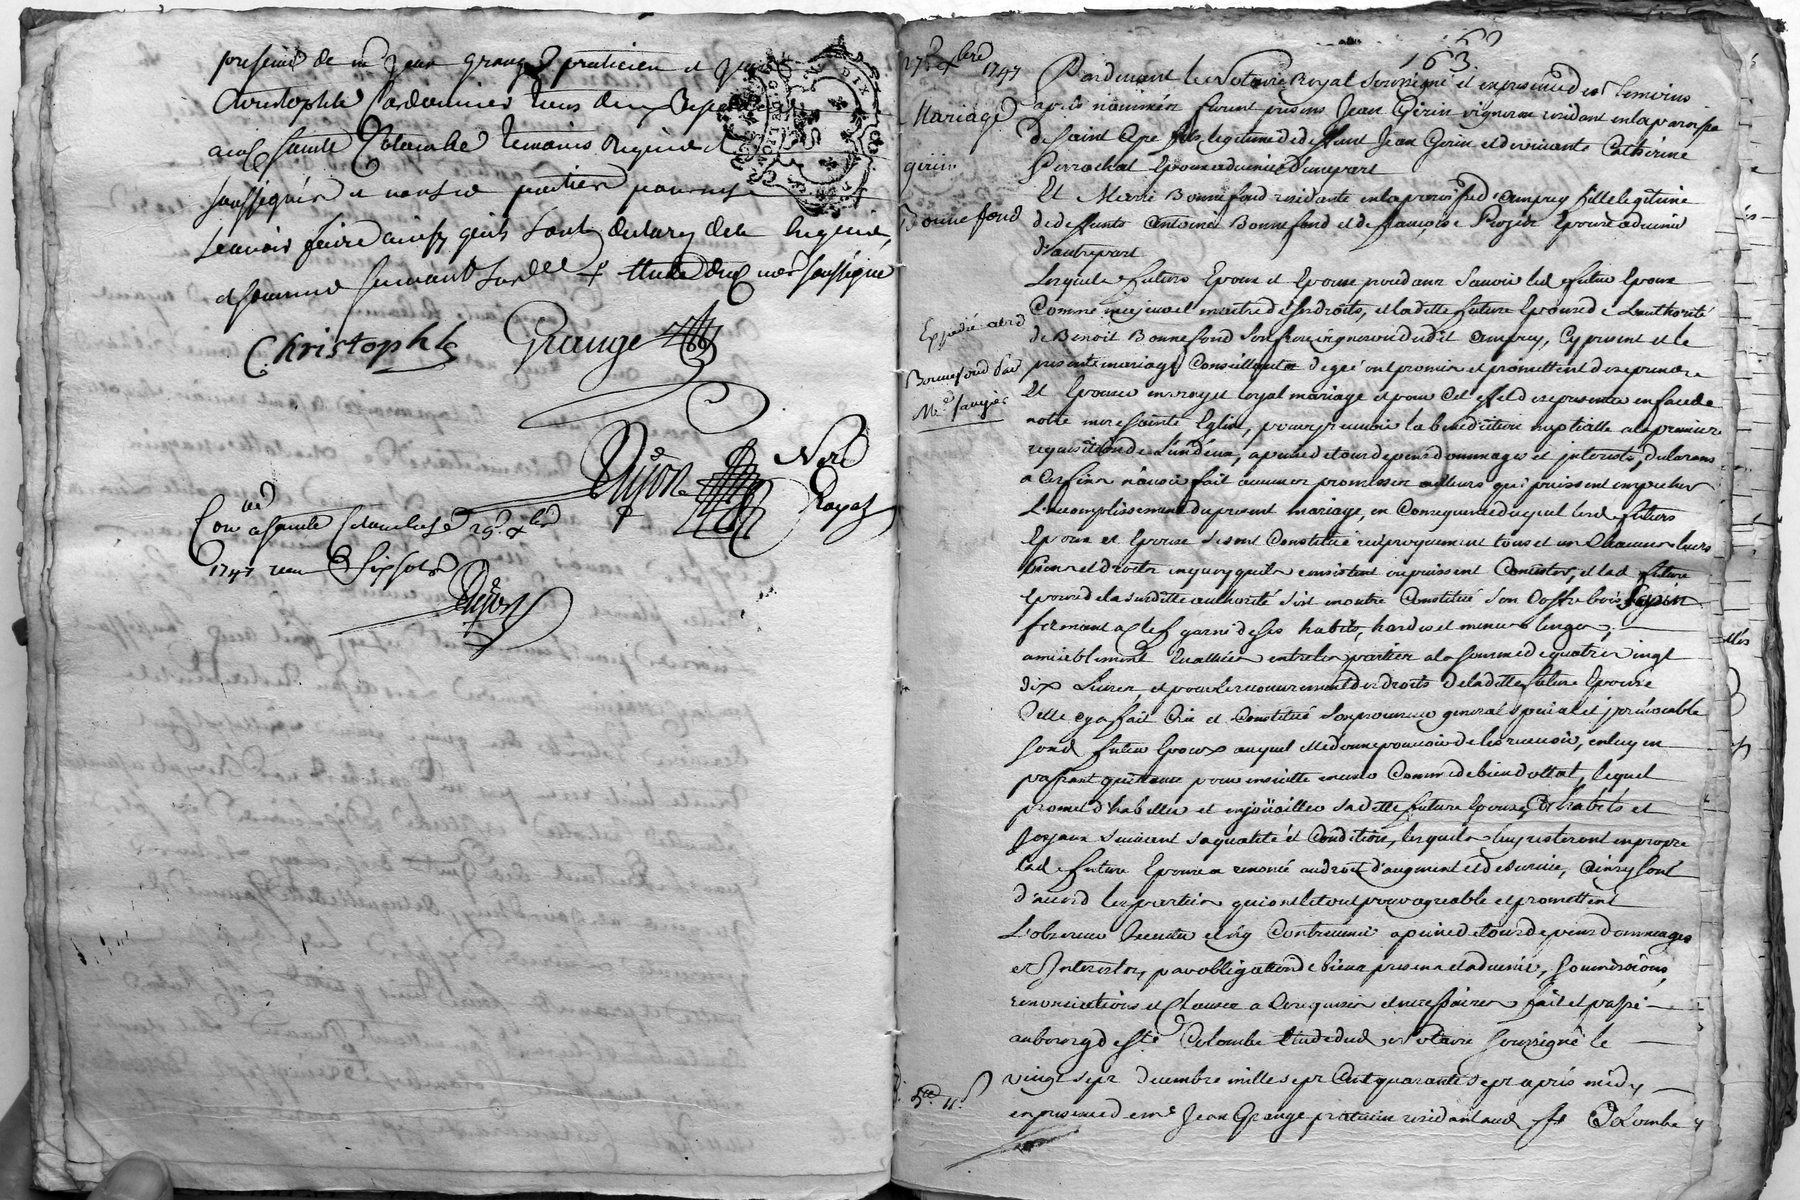 presence de m.e Jean Grange praticien et
Christophle
ainsy sainte Colombe temoins requis et
soussignés et non les parties pour ne
scavoir faire ainsy quils ont declaré de ce requis
et somme suivant l'ord.ce + etude dud not.re soussigné
Christophle Grange
Dujon No.re
Royal
Con.llé a Sainte Colombe le 29.e xbre
1747 receu six sols
Dujon
60
163
27.e xbre 1747
Mariage
girin
Bonnefond
Expedié a lad
Bonnefond par
M.e
Pardevant le Notaire Royal soussigné et en presence des temoins
apres nommés furent presens Jean Girin vigneron residant en la paroisse
de Saint Cyre fils legitime de deffunt Jean Girin et de vivante Catherine
Perrachat Epoux advenir d'une part
Et Marie Bonnefond residante en la paroisse d'Ampuy fille legitime
de deffunts Antoine Bonnefond et de françoise Epouse advenir
d'autre part
Lesquels futurs Epoux et Epouse procedans Savoir led futur Epoux
Comme majeur et maitre de ses droits, et laditte future Epouse de L'authorité
de Benoit Bonnefond son frere vigneron dudit Ampuy, Cy present et le
present mariage Conseillant de gré ont promis et promettent de se prendre
Et Epouser en vray et loyal mariage et pour Cet effet de se presenter en face de
notre mere sainte Eglise, pour y recevoir la benediction nuptialle a la premiere
requisition de L'un d'eux, a peine de tous depens dommages et interests, declarans
a Ces fins n'avoir fait aucunes promesses ailleurs qui puissent empecher
L'accomplissement du present mariage, en Consequence duquel lesd futurs
Epoux et Epouse se sont Constitué reciproquement tous et un Chacuns leurs
biens et droits en quoy quils consistent ou puissent Consister, et lad future
Epouse de la susditte authorité s'est en outre Constitué son Coffre bois sapin
fermant a Clef garni de ses habits, hardes et menus linges,
amiablement Evalués entre les parties a la somme de quatre vingt
dix Livres, et pour le recouvrement des droits de laditte future Epouse
Elle a fait Crée et Constitué son procureur general special et irrevocable
sond futur Epoux auquel elle donne pouvoir de les recevoir, en luy en
passant quittance pour ensuitte en user Comme de bien dottal, lequel
promet d'habiller et enjoüailler sad.te future Epouse d'habits et
Joyaux suivant sa qualité et Condition, lesquels luy resteront en propre
lad future Epouse a renoncé au droit d'augment et de survie, Ainsy sont
d'accord les parties qui ont le tout pour agreable et promettent
L'observer Executer et n'y Contrevenir a peine de tous depens dommages
et Interests, par obligation de biens presens et advenir, Soumissions,
renonciations et Clauses a Ce requises et necessaires fait et passé
au bourg de S.te Colombe Etude dud Notaire soussigné le
vingt sept decembre mille sept Cent quarante sept apres midy
en presence de m.e Jean Grange praticien residant aud S.te Colombe